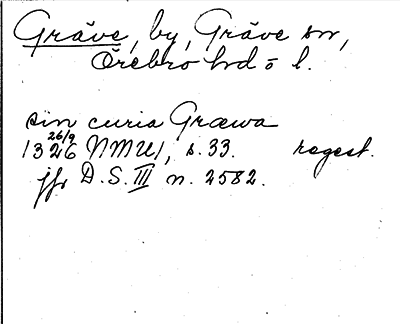 Gräve, by, Gräve sn,
Örebro hd o l.
sin curia Græwa
26/9
1326 NMU, s. 33. regest.
jfr D.S. III n. 2582.